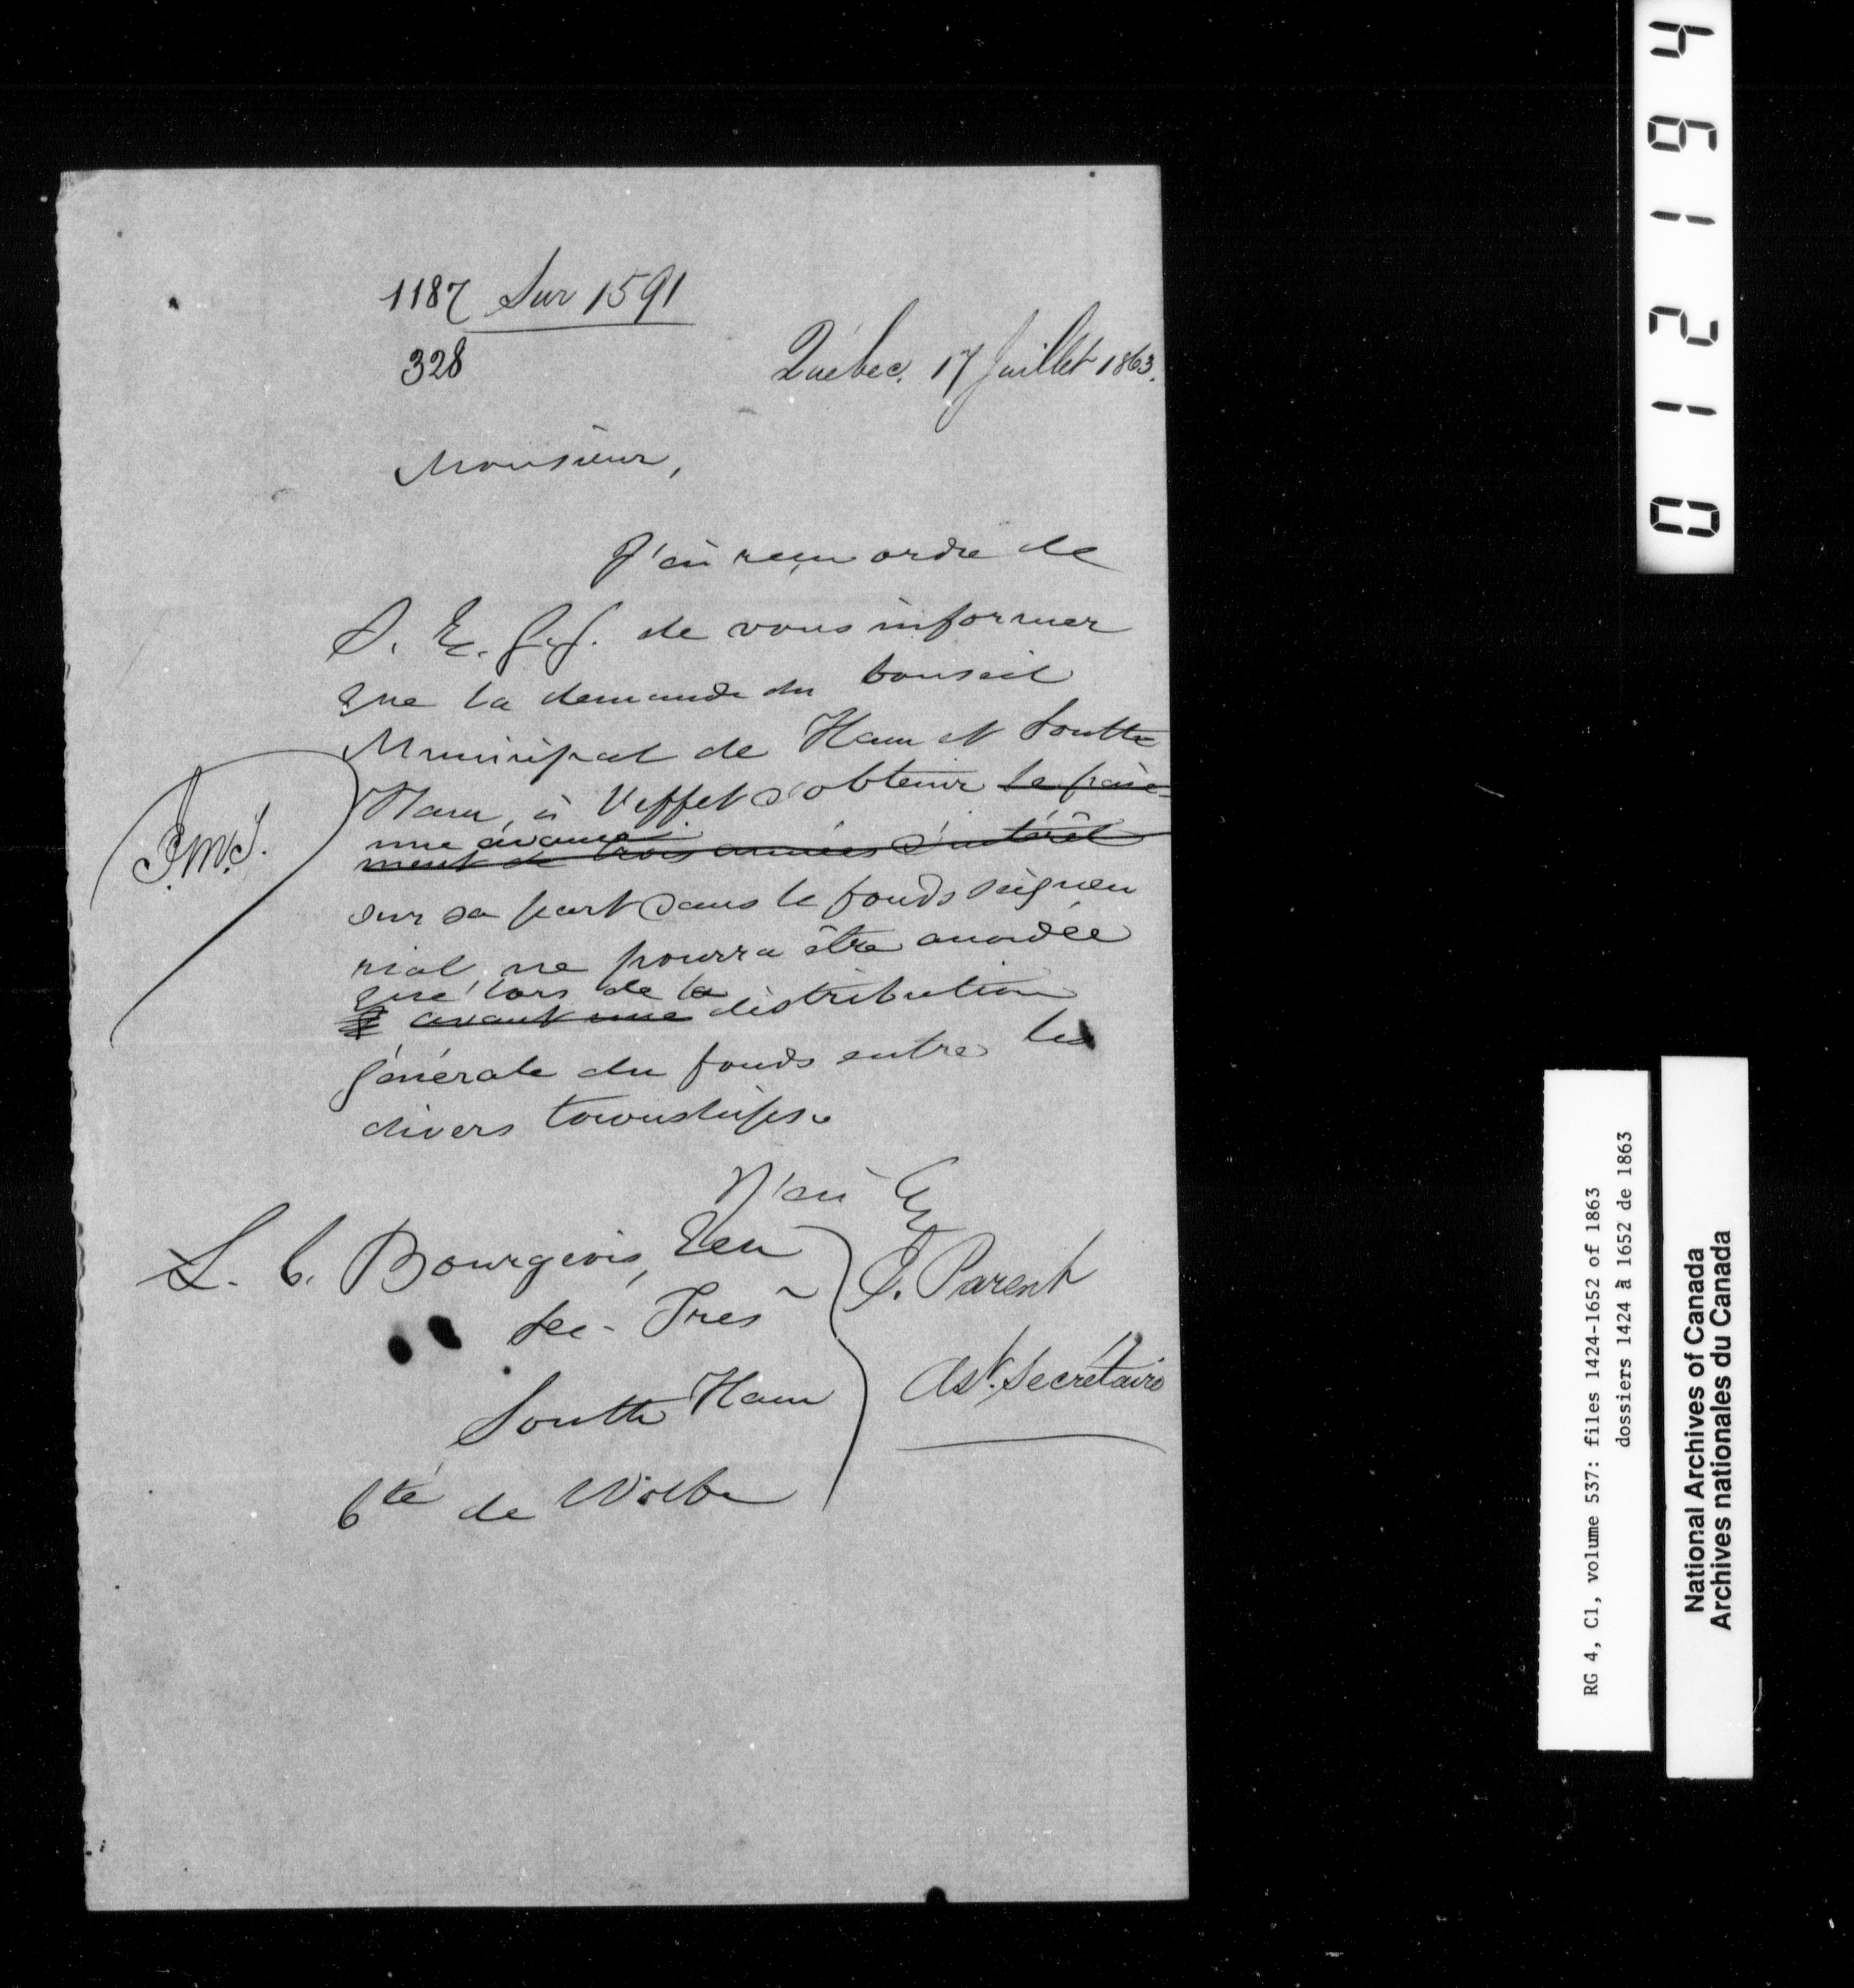 1187 Sur 1591
328
Québec, 17 Juillet 1863.
Monsieur,
J'ai reçu ordre de
S. E. G. G. de vous informer
que la demande du Conseil
Municipal de Ham et South
Ham, à l'effet d'obtenir le paie-
une avance
ment de trois années d'intérêt
sur sa part dans le fonds seigneu
rial, ne pourra être accordée
que lors de la
avant une distribution
générale du fonds entre les
divers townships.
J'ai
L. C. Bourgeois, Ecu
Sec- Trés
South Ham
Cté de Wolfe
E. Parent
Ast. Secrétaire
012194
RG 4, C1, volume 537: files 1424-1652 of 1863
dossiers 1424 à 1652 de 1863
National Archives of Canada
Archives nationales du Canada